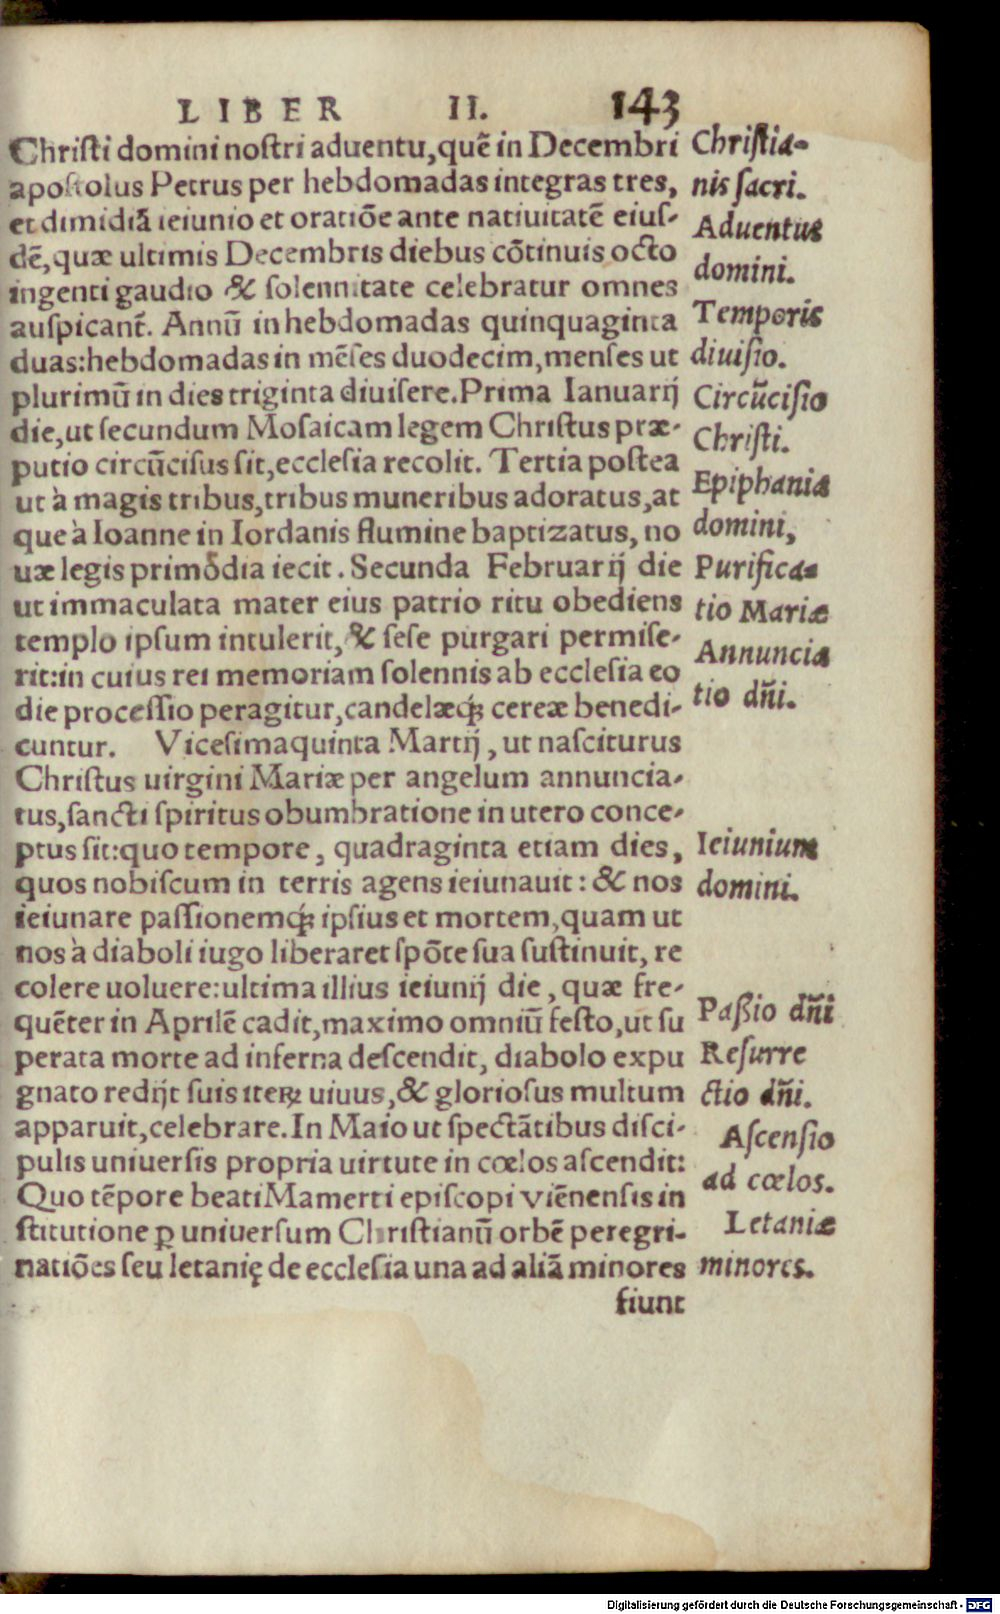 LIBER II. 143
Chriſti domini noſtri aduentu, quē in Decembri
apoſtolus Petrus per hebdomadas integras tres,
et dimidiā ieiunio et oratiōe ante natiuitatē eiuſ-
dē, quæ ultimis Decembris diebus cōtinuis octo
ingenti gaudio & ſolennitate celebratur omnes
auſpicant̃. Annū in hebdomadas quinquaginta
duas: hebdomadas in mēſes duodecim, menſes ut
plurimū in dies triginta diuiſere. Prima Ianuarij
die, ut ſecundum Moſaicam legem Chriſtus præ-
putio circūciſus ſit, eccleſia recolit. Tertia poſtea
ut à magis tribus, tribus muneribus adoratus, at
que à Ioanne in Iordanis flumine baptizatus, no
uæ legis primōdia iecit. Secunda Februarij die
ut immaculata mater eius patrio ritu obediens
templo ipſum intulerit, & ſeſe purgari permiſe-
rit: in cuius rei memoriam ſolennis ab eccleſia eo
die proceſſio peragitur, candelæq́; cereæ benedi-
cuntur. Viceſimaquinta Martij, ut naſciturus
Chriſtus uirgini Mariæ per angelum annuncia-
tus, ſancti ſpiritus obumbratione in utero conce-
ptus ſit: quo tempore, quadraginta etiam dies,
quos nobiſcum in terris agens ieiunauit: & nos
ieiunare paſſionemq́; ipſius et mortem, quam ut
nos à diaboli iugo liberaret ſpōte ſua ſuſtinuit, re
colere uoluere: ultima illius ieiunij die, quæ fre-
quēter in Aprilē cadit, maximo omniū feſto, ut ſu
perata morte ad inferna deſcendit, diabolo expu
gnato redijt ſuis iteꝝ uiuus, & glorioſus multum
apparuit, celebrare. In Maio ut ſpectātibus diſci-
pulis uniuerſis propria uirtute in cœlos aſcendit:
Quo tēpore beati Mamerti epiſcopi viēnenſis in
ſtitutione ꝑ uniuerſum Chriſtianū orbē peregri-
natiōes ſeu letanię de eccleſia una ad aliā minores
fiunt
Chriſtia-
nis ſacri.
Aduentus
domini.
Temporis
diuiſio.
Circūciſio
Chriſti.
Epiphania
domini,
Purifica-
tio Mariæ
Annuncia
tio dñi.
Ieiunium
domini.
Paßio dñi
Reſurre
ctio dñi.
Aſcenſio
ad cœlos.
Letaniæ
minores.
Digitalisierung gefördert durch die Deutsche Forschungsgemeinschaft - DFG